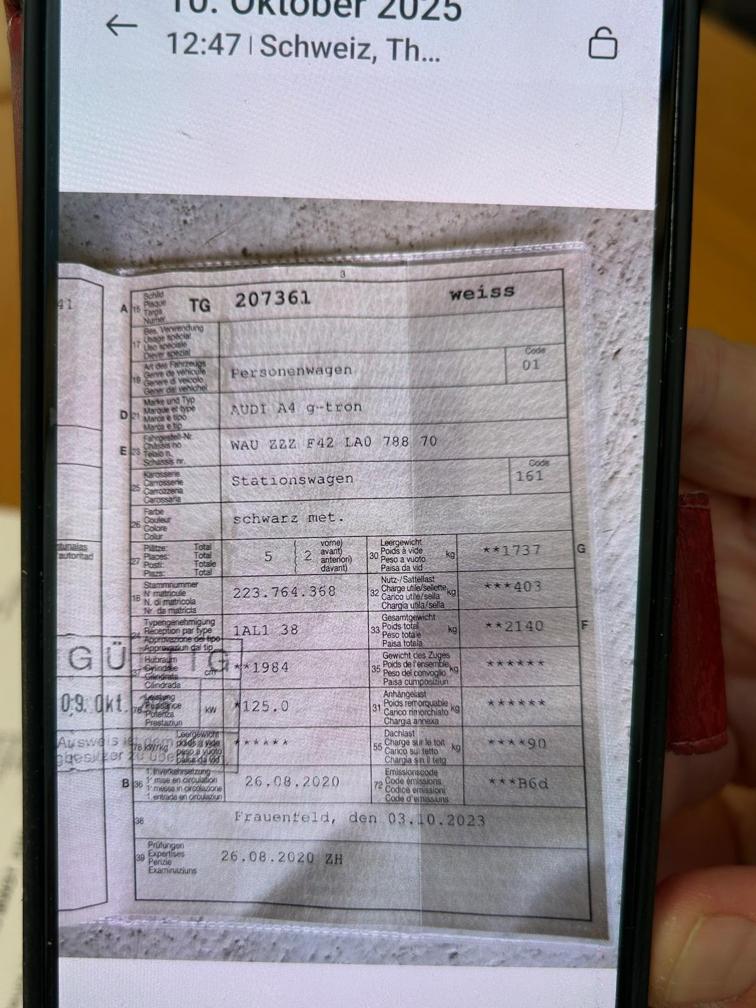 10. Oktober 2025
12:47 | Schweiz, Th...
3
41
A 15 Schild Plaque Targa Numer TG 207361 weiss
17 Bes. Verwendung Usage spécial Uso speciale Diever spezial
19 Art des Fahrzeugs Genre de véhicule Genere di veicolo Gener dal vehichel Personenwagen Code 01
D 21 Marke und Typ Marque et type Marca e tipo Marca e tip AUDI A4 g-tron
E 23 Fahrgestell-Nr. Châssis no Telaio n. Schassis nr. WAU ZZZ F42 LA0 788 70
25 Karosserie Carrosserie Carrozzeria Carossaria Stationswagen Code 161
26 Farbe Couleur Colore Colur schwarz met.
27 Plätze: Total Places: Total Posti: Totale Plazs: Total 5 ( 2 vorne) avant) anteriori) davant) 30 Leergewicht Poids à vide Peso a vuoto Paisa da vid kg **1737 G
18 Stammnummer N° matricule N. di matricola Nr. da matricla 223.764.368 32 Nutz-/Sattellast Charge utile/sellette Carico utile/sella Chargia utila/sella kg ***403
24 Typengenehmigung Réception par type Approvazione del tipo Approvaziun dal tip 1AL1 38 33 Gesamtgewicht Poids total Peso totale Paisa totala kg **2140 F
37 Hubraum Cylindrée Cilindrata Cilindrada cm³ **1984 35 Gewicht des Zuges Poids de l'ensemble Peso del convoglio Paisa cumposiziun kg ******
76 Leistung Puissance Potenza Prestaziun kW *125.0 31 Anhängelast Poids remorquable Carico rimorchiato Chargia annexa kg ******
78 kW/kg Leergewicht poids à vide peso a vuoto paisa da vid ***** 55 Dachlast Charge sur le toit Carico sul tetto Chargia sin il tetg kg ****90
B 36 1. Inverkehrsetzung 1re mise en circulation 1a messa in circolazione 1. entrada en circulaziun 26.08.2020 72 Emissionscode Code émissions Codice emissioni Code d'emissiuns ***B6d
38 Frauenfeld, den 03.10.2023
39 Prüfungen Expertises Perizie Examinaziuns 26.08.2020 ZH
GÜLTIG
09. Okt.
Ausweis